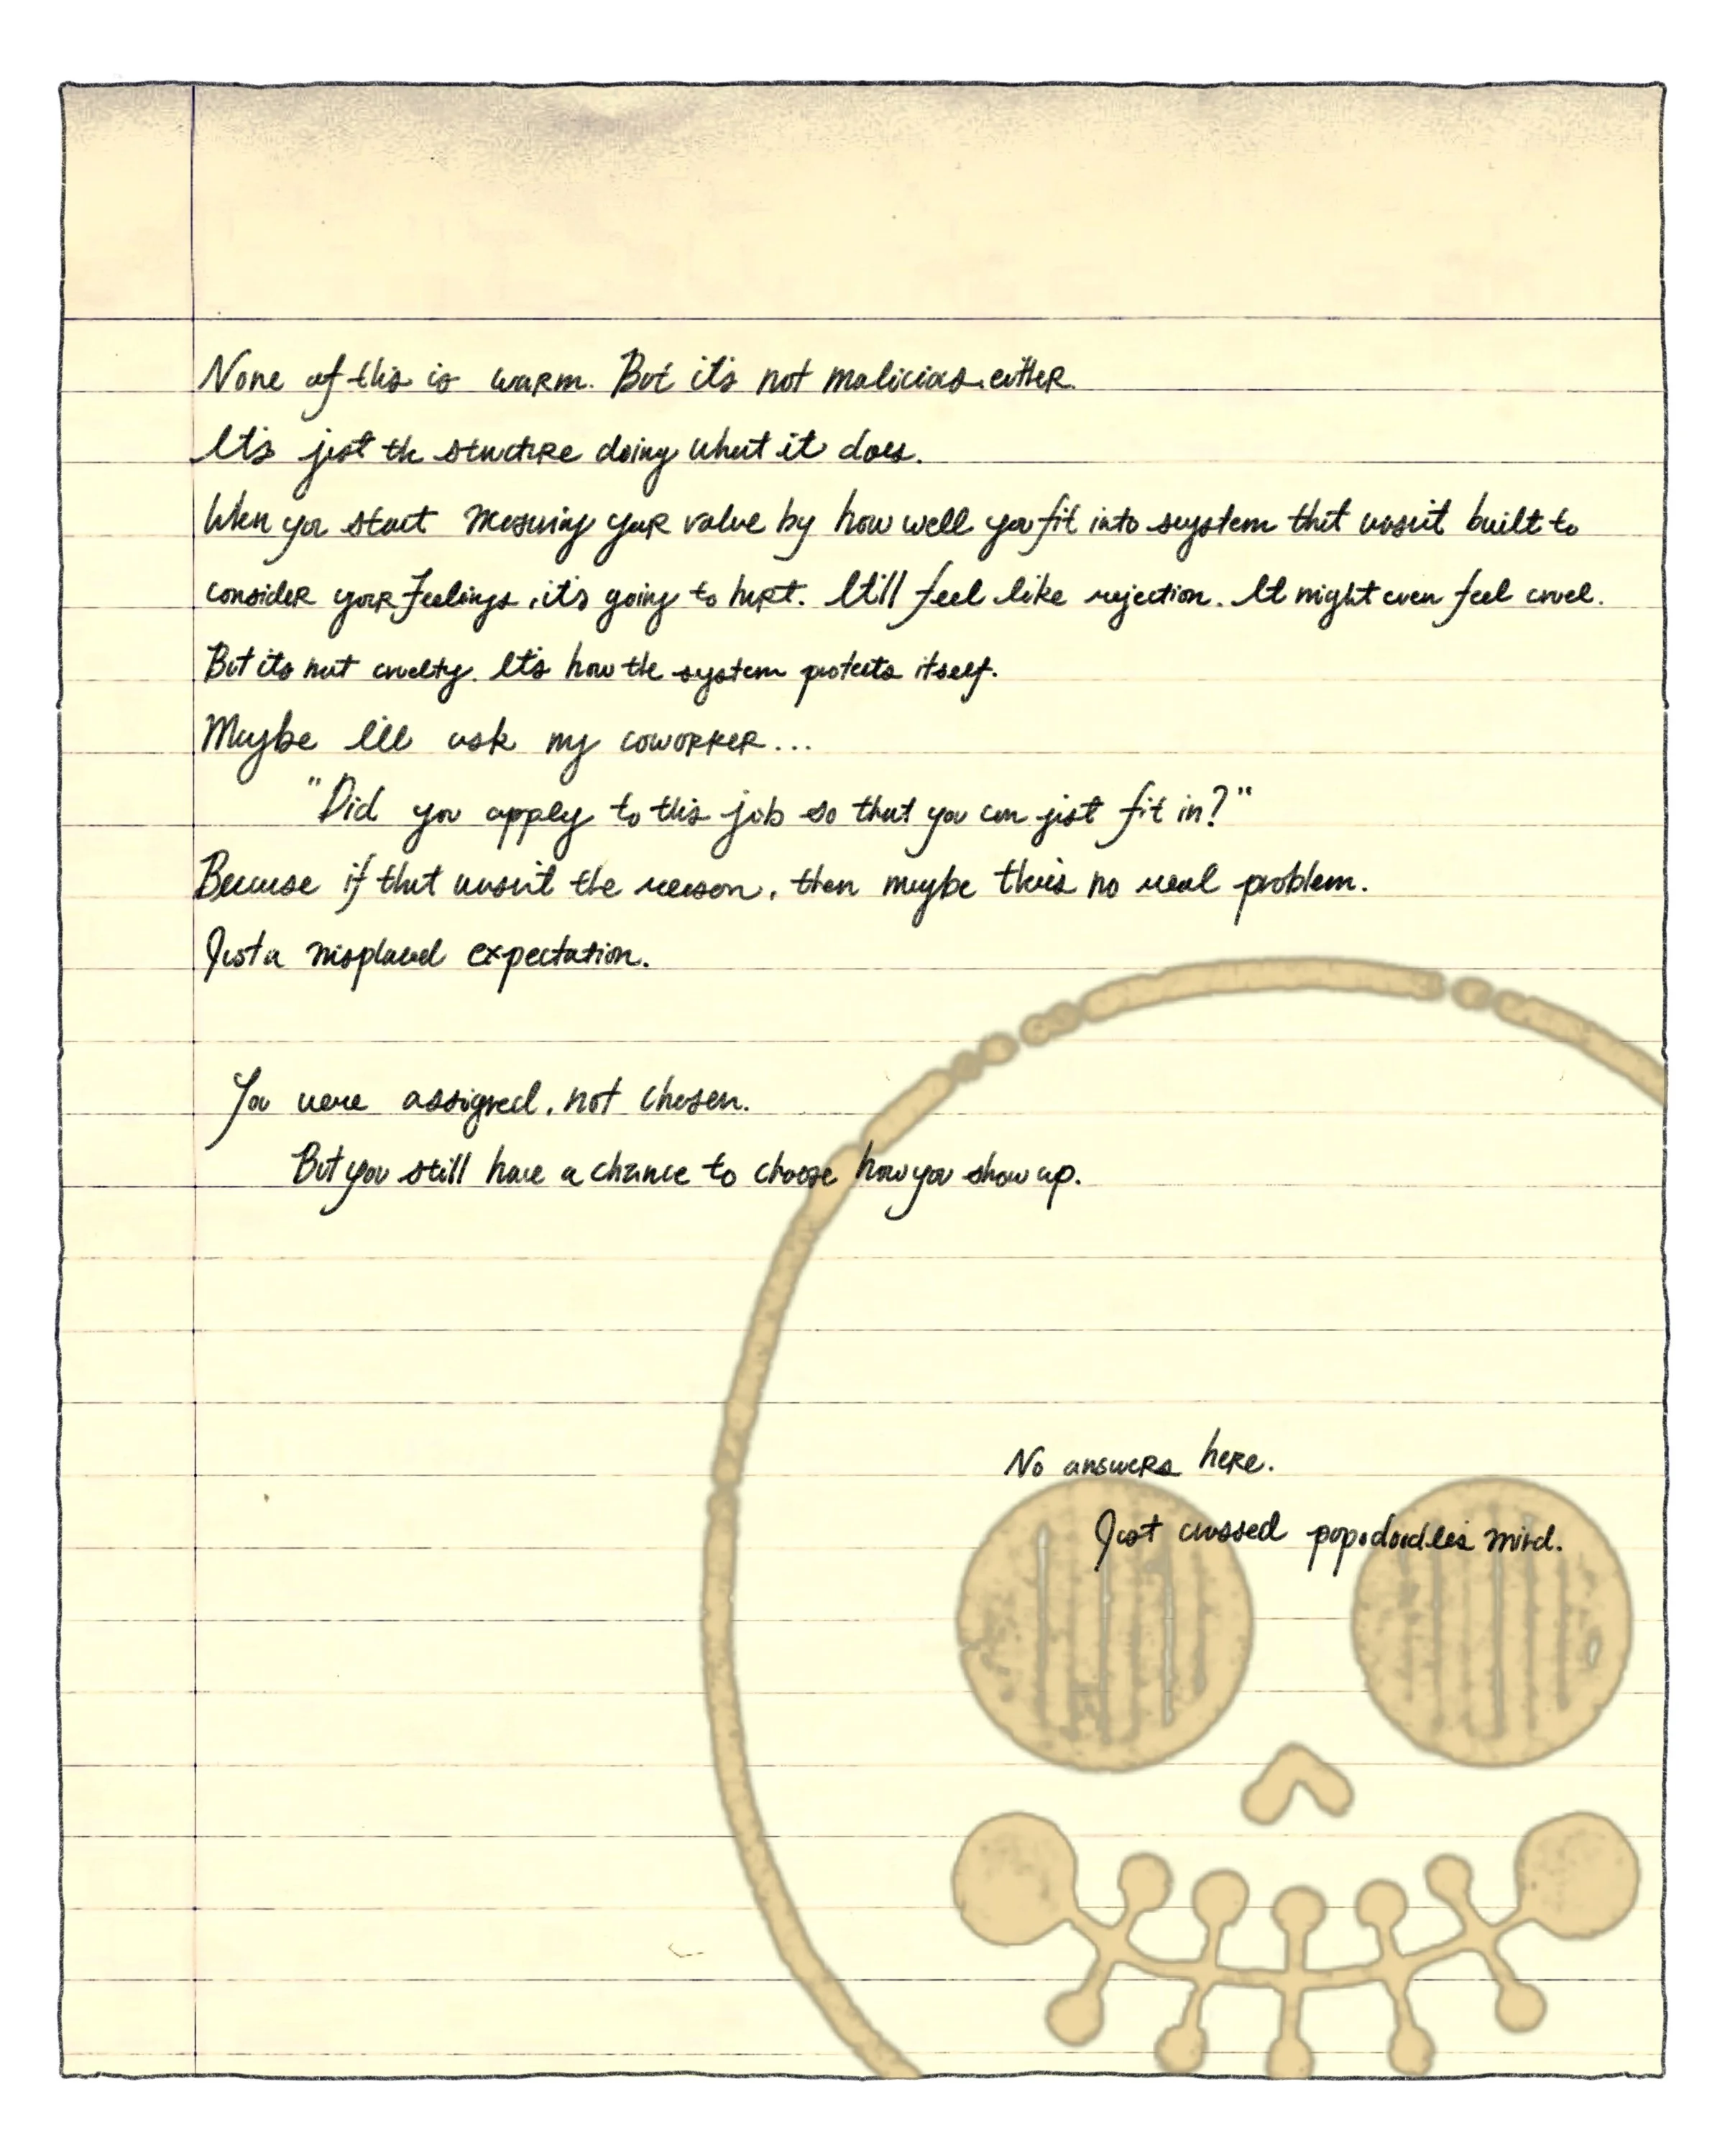 None of this is warm. But it's not malicious either.
It's just the structure doing what it does.
When you start measuring your value by how well you fit into system that wasn't built to
consider your feelings, it's going to hurt. It'll feel like rejection. It might even feel cruel.
But its not cruelty. It's how the system protects itself.
Maybe I'll ask my coworker...
"Did you apply to this job so that you can just fit in?"
Because if that wasn't the reason, then maybe there's no real problem.
Just a misplaced expectation.
You were assigned, not chosen.
But you still have a chance to choose how you show up.
No answers here.
Just crossed pop.doodle's mind.